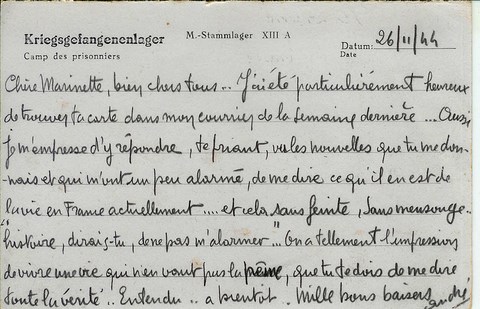 Kriegsgefangenenlager
Camp des prisonniers
M.-Stammlager XIII A
Datum: 26/11/44
Date
Chère Marinette, bien chers tous.. J'ai été particulièrement heureux
de trouver ta carte dans mon courrier de la semaine dernière... Aussi
je m'empresse d'y répondre, te priant, vu les nouvelles que tu me don-
-nais et qui m'ont un peu alarmé, de me dire ce qu'il en est de
la vie en France actuellement.... et cela sans feinte, sans mensonge..
"histoire, dirais-tu, de ne pas m'alarmer". On a tellement l'impression
de vivre une vie qui n'en vaut pas la peine, que tu te dois de me dire
toute la vérité.. Entendu.. a bientôt. Mille bons baisers
andré